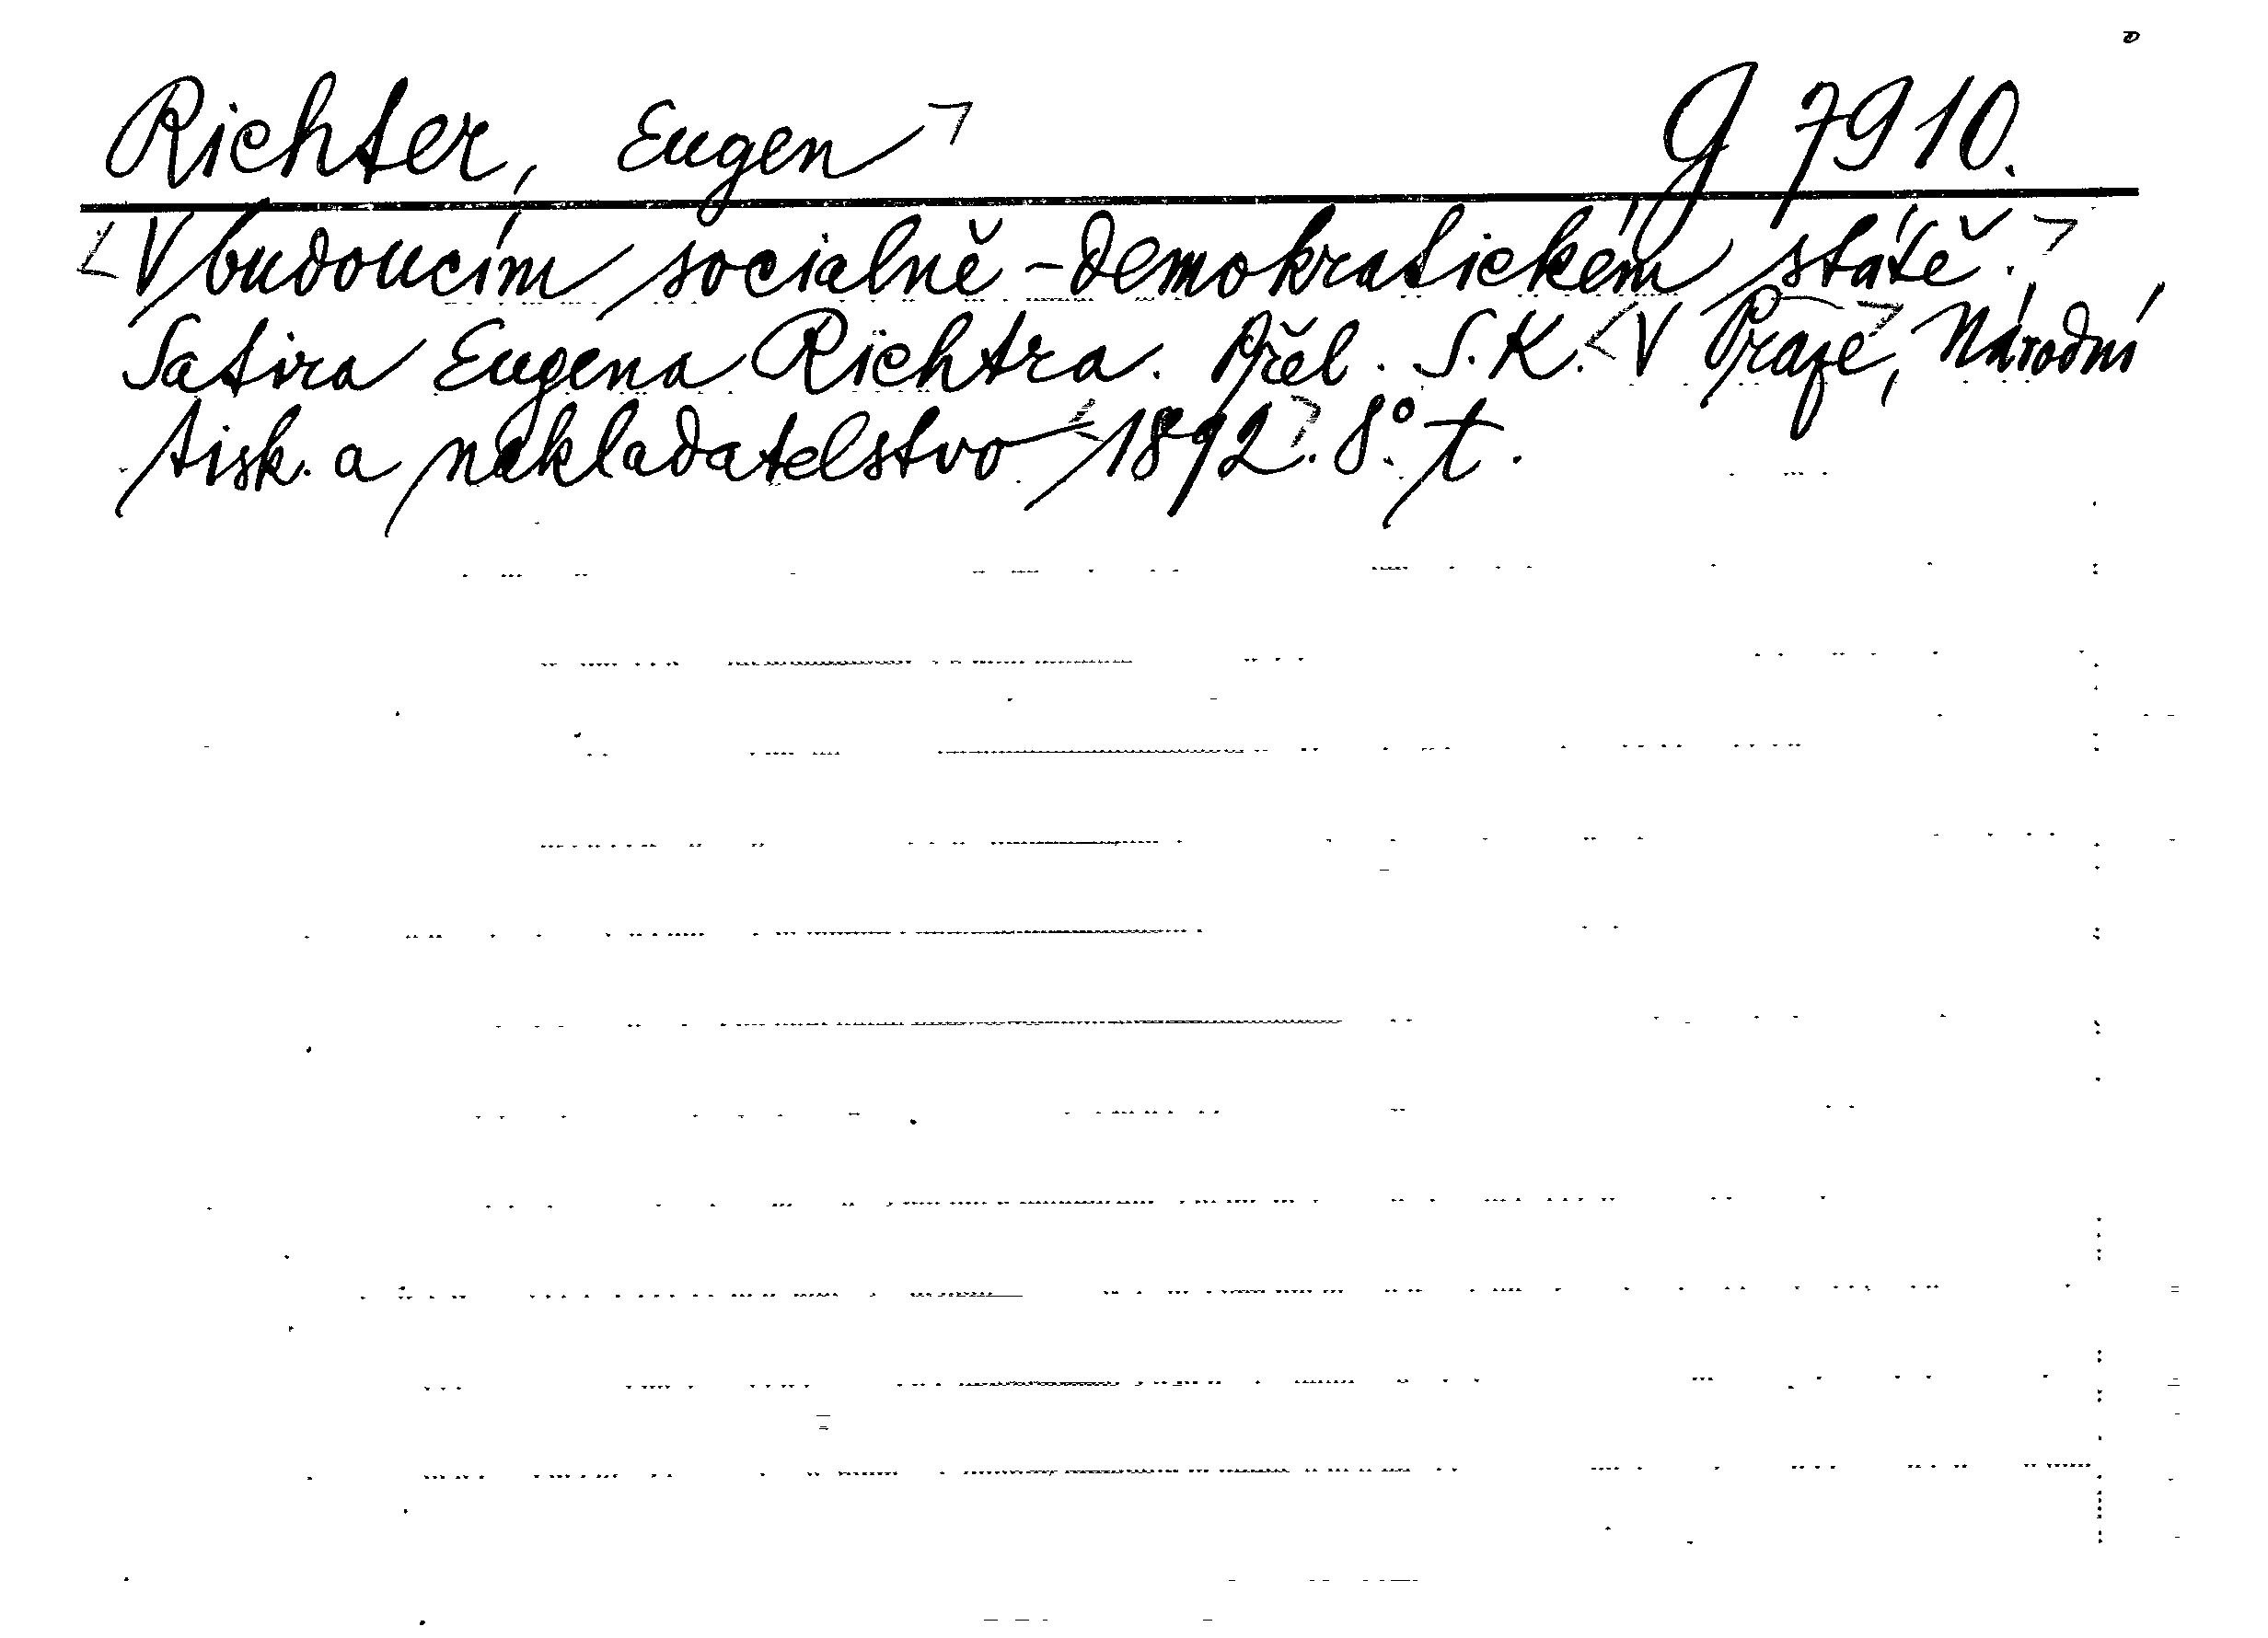 Richter, Eugen G 7910.
V budoucím socialně-demokratickém státě.
Satira Eugena Richtra. Přel. S. K. V Praze, Národní
tisk. a nakladatelstvo 1892. 8° t.